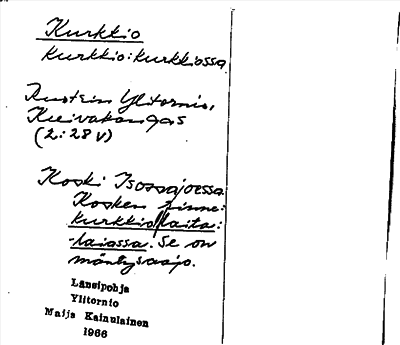 Kurkkio
Kurkkio: kurkkiossa
Ruotsin Ylitornio,
Kuivakangas
(2:28 V)
Koski Isossajoessa.
Kosken rinne:
kurkkio//laita:
-laiassa. Se on
mäntysaajo.
Länsipohja
Ylitornio
Maija Kainulainen
1966